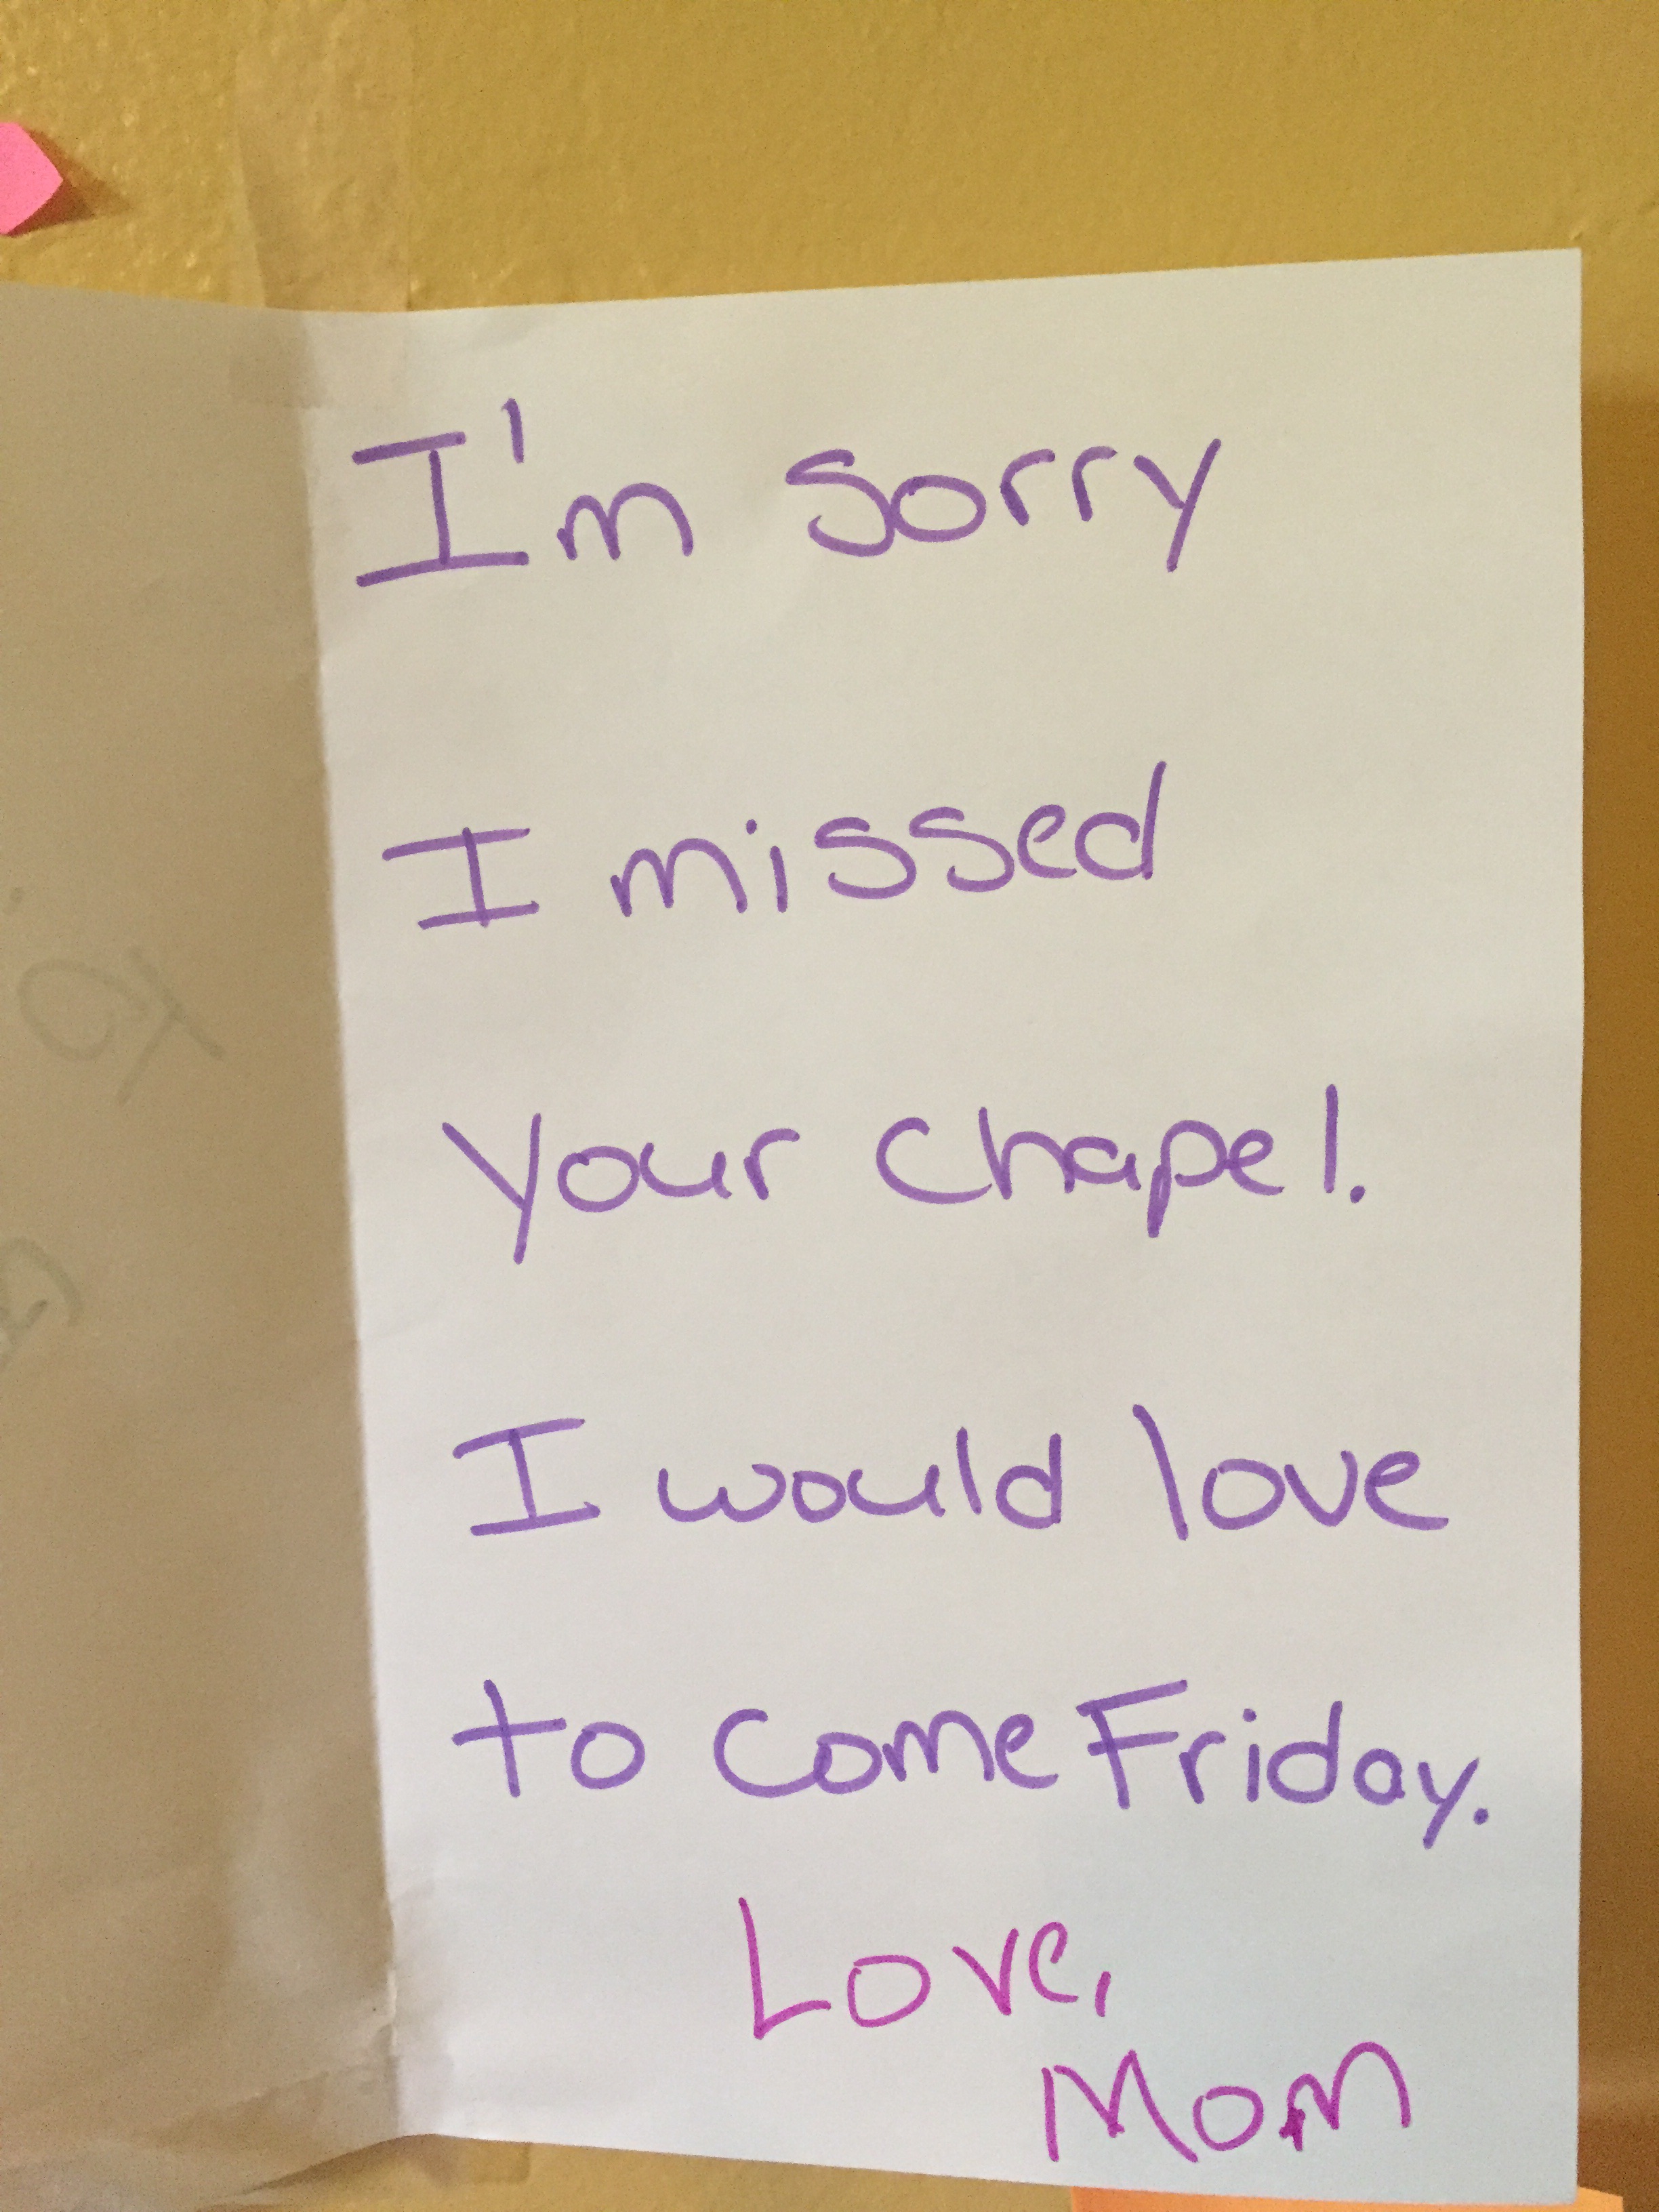 I'm sorry
I missed
your chapel.
I would love
to come Friday.
Love,
Mom